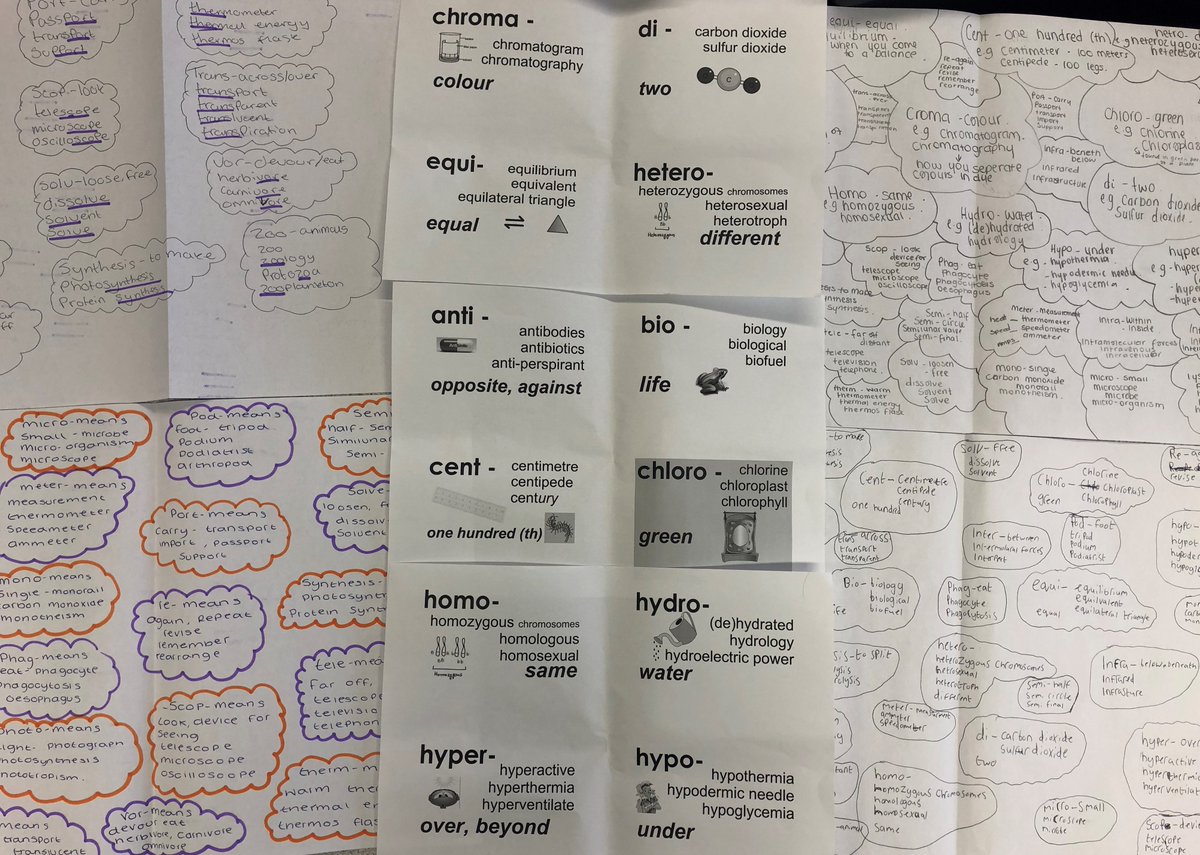 Passport
transport
Support
Scop-look
telescope
microscope
oscilloscope
Solu-loose,free
dissolve
Solvent
Solve
Synthesis-to make
Photosynthesis
Protein synthesis
thermometer
thermal energy
thermos flask
Trans-across/over
transport
transparent
translucent
transpiration
Vor-devour/eat
herbivore
Carnivore
omnivore
Zoo-animals
zoo
zoology
Protozoa
zooplankton
micro-means
small-microbe
micro-organism
microscope
meter-means
measurement
thermometer
Speedometer
ammeter
mono-means
single-monorail
carbon monoxide
monotheism
Phag-means
eat-phagocyte
phagocytosis
oesophagus
photo-means
light-photograph
photosynthesis
phototropism.
means
transport
translucent
Pod-means
foot-tripod
Podium
Podiatrist
arthropod
Port-means
carry-transport
import, passport
Support
re-means
again, repeat
revise
remember
rearrange
-Scop-means
look, device for
seeing
telescope
microscope
oscilloscope
Vor-means
devour eat
herbivore, carnivore
omnivore
Semi
half-
Semi-
Solve-
loosen,
dissolve
Solvent
Synthesis-
Photosynth
Protein Synt
tele-mea
Far off,
telescope
television
telephon
therm-m
warm
thermal
thermos flas
chroma -
chromatogram
chromatography
colour
di -
carbon dioxide
sulfur dioxide
C
two
equi-
equilibrium
equivalent
equilateral triangle
equal
hetero-
heterozygous chromosomes
heterosexual
heterotroph
different
anti -
antibodies
antibiotics
anti-perspirant
opposite, against
bio -
biology
biological
biofuel
life
cent -
centimetre
centipede
century
one hundred (th)
chloro -
chlorine
chloroplast
chlorophyll
green
homo-
homozygous chromosomes
homologous
homosexual
same
hydro-
(de)hydrated
hydrology
hydroelectric power
water
hyper-
hyperactive
hyperthermia
hyperventilate
over, beyond
hypo-
hypothermia
hypodermic needle
hypoglycemia
under
equi-equal
equilibrium-
when you come
to a balance.
re-again
repeat
revise
remember
rearrange
Cent-one hundred (th)
e.g centimeter-100 meters
Centipede-100 legs.
Croma-colour
e.g chromatogram.
Chromatography
how you seperate
colours in dye
Port-carry
Passport
transport
import
Support
Chloro-green
e.g chlorine
Chloroplas
Infra-beneth
below
infrared
infrastructure
di-two
e.g Carbon dioxide
Sulfur dioxide.
Homo-same
e.g homozygous
homosexual.
Hydro-water
e.g (de)hydrated
hydrology
Scop-look
device for
seeing
telescope
microscope
oscilloscope
Phag-eat
Phagocyte
Phagocytosis
Oesophagus
Hypo-under
e.g-hypothermia
-hypodermic needle
-hypoglycemia
Semi-half
Semi-circle
Semilunar valve
Semi-final.
meter-measurement
heat-thermometer
speed-speedometer
ammeter
Intra-within
inside
Intramolecular forces
Intravenous
Intracellular
tele-far off
distant
telescope
television
telephone.
Solu-loosen
-free
dissolve
Solvent
Solve
mono-single
carbon monoxide
monorail
monotheism.
micro-small
microscope
microbe
micro-organism
therm-warm
thermometer
thermal energy
thermos flask
Cent-Centimetre
Centipede
century
one hundred
Solv-free
dissolve
Solvent
Chlorine
Chloro-Chloroplast
green Chlorophyll
trans across
transport
transparent
Inter-between
Intermolecular forces
Interpet
Pod-foot
tripod
Podium
Podiatrist
Bio-biology
biological
biofuel
life
Phag-eat
Phagocyte
Phagocytosis
equi-equilibrium
equilvalent
equal equilateral triangle
hetero-
heterozygous chromosomes
heterosexual
heterotroph
different
Semi-half
Semi circle
Semi final
Infra-below/beneath
Infrared
meter-measurment
ammeter
speedometer
di-carbon dioxide
sulfur dioxide
two
hyper-over
hyperactive
hyperthermia
hyperventilat
homo-
homozygous chromosomes
homologous
homosexual
Same
micro-small
microscope
microbe
telescope
microscope